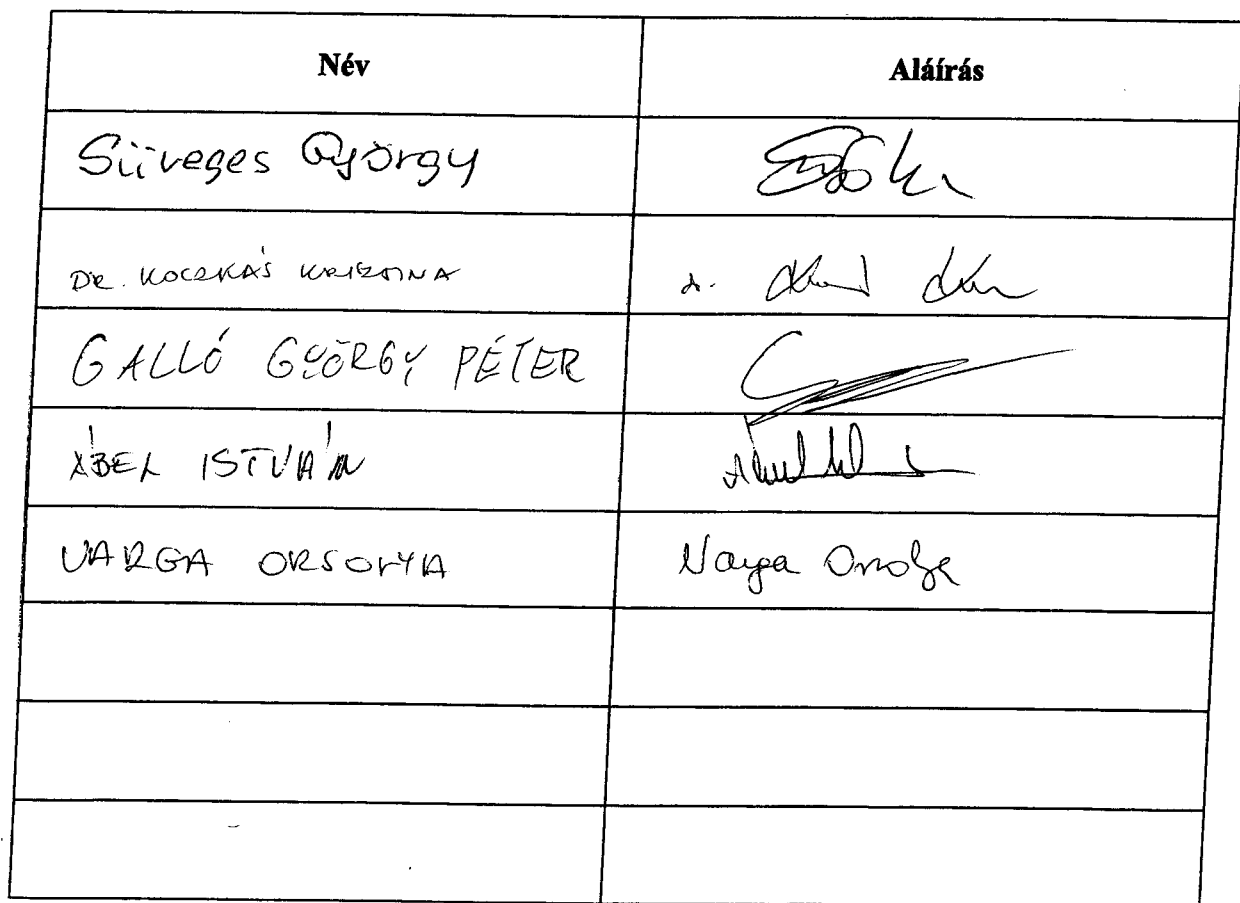 Név Aláírás
Süveges György
DR. KOCZKÁS KRISZTINA dr.
GALLÓ GYÖRGY PÉTER
ÁBEL ISTVÁN
VARGA ORSOLYA Varga Orsolya